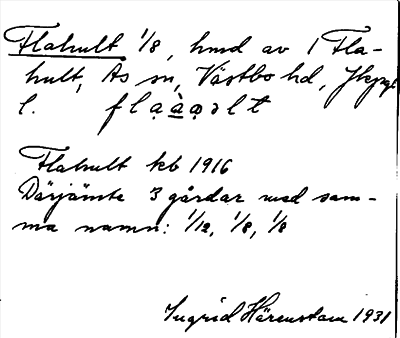 Flahult 1/8, hmd av 1 Fla-
hult, Ås sn, Västbo hd, Jkpgs
l. flạạ̀ạəlt
Flahult kb 1916
Därjämte 3 gårdar med sam-
ma namn: 1/12, 1/8, 1/8
Ingrid Härenstam 1931